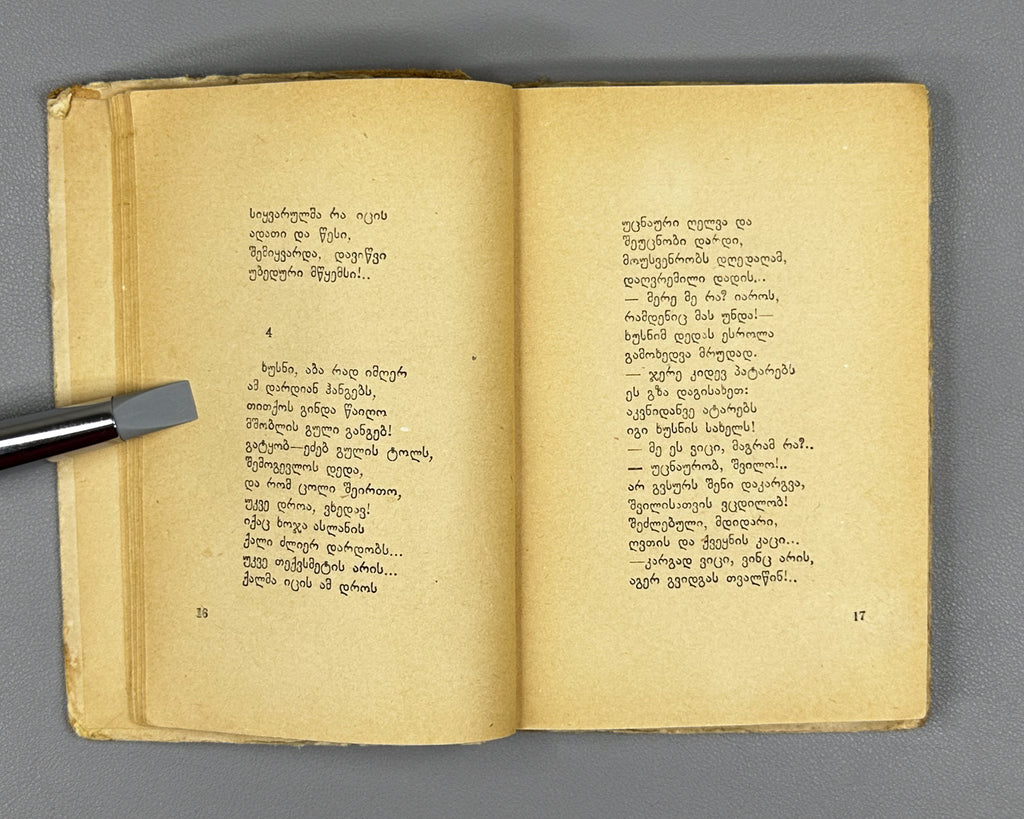 სიყვარულმა რა იცის
ადათი და წესი,
შემიყვარდა, დავიწვი
უბედური მწყემსი!..
4
ხუსნი, აბა რად იმღერ
ამ დარდიან ჰანგებს,
თითქოს გინდა წაიღო
მშობლის გული განგებ!
გატყობ—ეძებ გულის ტოლს,
შემოგევლოს დედა,
და რომ ცოლი შეირთო,
უკვე დროა, ვხედავ!
იქაც ხოჯა ასლანის
ქალი ძლიერ დარდობს...
უკვე თექვსმეტის არის...
ქალმა იცის ამ დროს
16
უცნაური ღელვა და
შეუცნობი დარდი,
მოუსვენრობს დღედაღამ,
დაღვრემილი დადის...
— მერე მე რა? იაროს,
რამდენიც მას უნდა!—
ხუსნიმ დედას ესროლა
გამოხედვა მრუდად.
— ჯერე კიდევ პატარებს
ეს გზა დაგისახეთ:
აკვნიდანვე ატარებს
იგი ხუსნის სახელს!
— მე ეს ვიცი, მაგრამ რა?..
— უცნაურობ, შვილო!..
არ გვსურს შენი დაკარგვა,
შვილისათვის ვცდილობ!
შეძლებული, მდიდარი,
ღვთის და ქვეყნის კაცი...
—კარგად ვიცი, ვინც არის,
აგერ გვიდგას თვალწინ!..
17